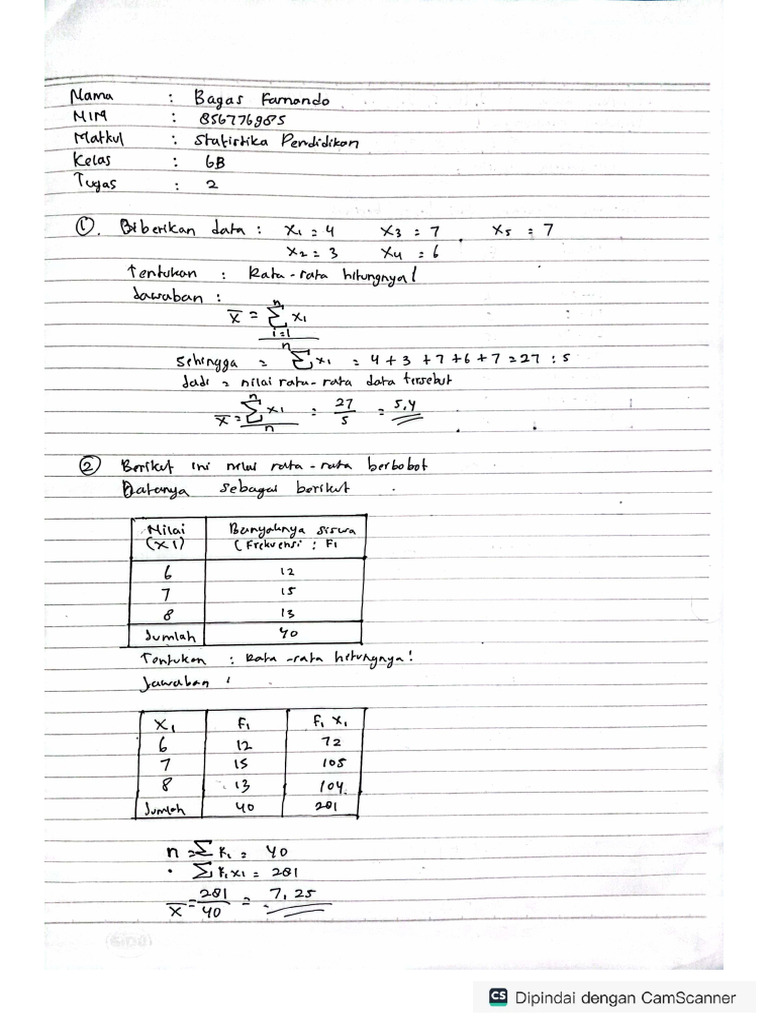 Nama : Bagas Farnando
NIM : 856776985
Matkul : Statistika Pendidikan
Kelas : 6B
Tugas : 2
① . Diberikan data : x₁ = 4 x₃ = 7 . x₅ = 7
x₂ = 3 x₄ = 6
Tentukan : Rata-rata hitungnya!
Jawaban :
x̄ = n Σ i=1 x₁
n
Sehingga = Σ x₁ = 4 + 3 + 7 + 6 + 7 = 27 : 5
Jadi = nilai rata-rata data tersebut
x̄ = n Σ x₁ / n = 27/5 = 5,4
② Berikut ini nilai rata-rata berbobot
Datanya sebagai berikut .
Nilai (x1) Banyaknya siswa (Frekuensi : F₁
6 12
7 15
8 13
Jumlah 40
Tentukan : Rata-rata hitungnya!
Jawaban :
X₁ F₁ F₁ X₁
6 12 72
7 15 105
8 13 104
Jumlah 40 281
n = Σ F₁ = 40
• Σ F₁x₁ = 281
x̄ = 281/40 = 7,25
CS Dipindai dengan CamScanner